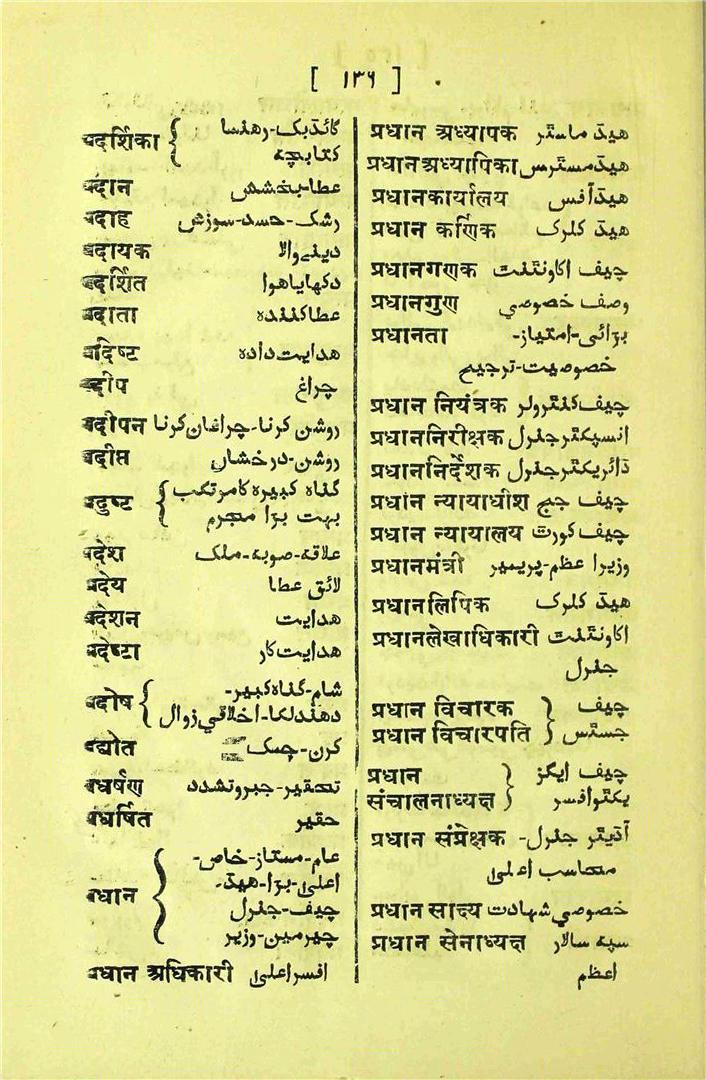 [ ١٣٦ ]
प्रदर्शिका { گائڈبک-رهنما
کتابچه
प्रदान عطا-بخشش
प्रदाह رشک-حسد-سوزش
प्रदायक دینےوالا
प्रदर्शित دکهایاهوا
प्रदाता عطاکنندہ
प्रदिष्ट هدایت‌دادہ
प्रदीप چراغ
प्रदीपन روشن کرنا-چراغاں‌کرنا
प्रदीप्त روشن-درخشاں
प्रदुष्ट { گناہ کبیرہ کا مرتکب
بہت بڑا مجرم
प्रदेश علاقه-صوبه-ملک
प्रदेय لائق عطا
प्रदेशन هدایت
प्रदेष्टा هدایت‌کار
प्रदोष { شام-گناہ‌کبیر-
دهندلکا-اخلاقي زوال
प्रद्योत کرن-چمک
प्रधर्षण تحقیر-جبروتشدد
प्रधर्षित حقیر
प्रधान { عام-ممتاز-خاص-
اعلیٰ-بڑا-هیڈ-
چیف-جنرل
چیرمین-وزیر
प्रधान अधिकारी افسراعلیٰ
प्रधान अध्यापक هیڈ ماسٹر
प्रधानअध्यापिका هیڈمسٹرس
प्रधानकार्यालय هیڈآفس
प्रधान कर्णिक هیڈ کلرک
प्रधानगणक چیف اکاونٹنٹ
प्रधानगुण وصف خصوصي
प्रधानता بڑائی-امتیاز-
خصوصیت-ترجیح
प्रधान नियंत्रक چیف‌کنٹرولر
प्रधाननिरीक्षक انسپکٹرجنرل
प्रधाननिर्देशक ڈائریکٹرجنرل
प्रधान न्यायाधीश چیف جج
प्रधान न्यायालय چیف‌کورٹ
प्रधानमंत्री وزیرا عظم-پریمیر
प्रधानलिपिक هیڈ کلرک
प्रधानलेखाधिकारी اکاونٹنٹ
جنرل
प्रधान विचारक } چیف
प्रधान विचारपति } جسٹس
प्रधान } چیف ایگز
संचालनाध्यक्ष } یکٹوافسر
प्रधान संप्रेक्षक آڈیٹر جنرل-
محاسب اعلیٰ
प्रधान साक्ष्य خصوصي شہادت
प्रधान सेनाध्यक्ष سپه سالار
اعظم